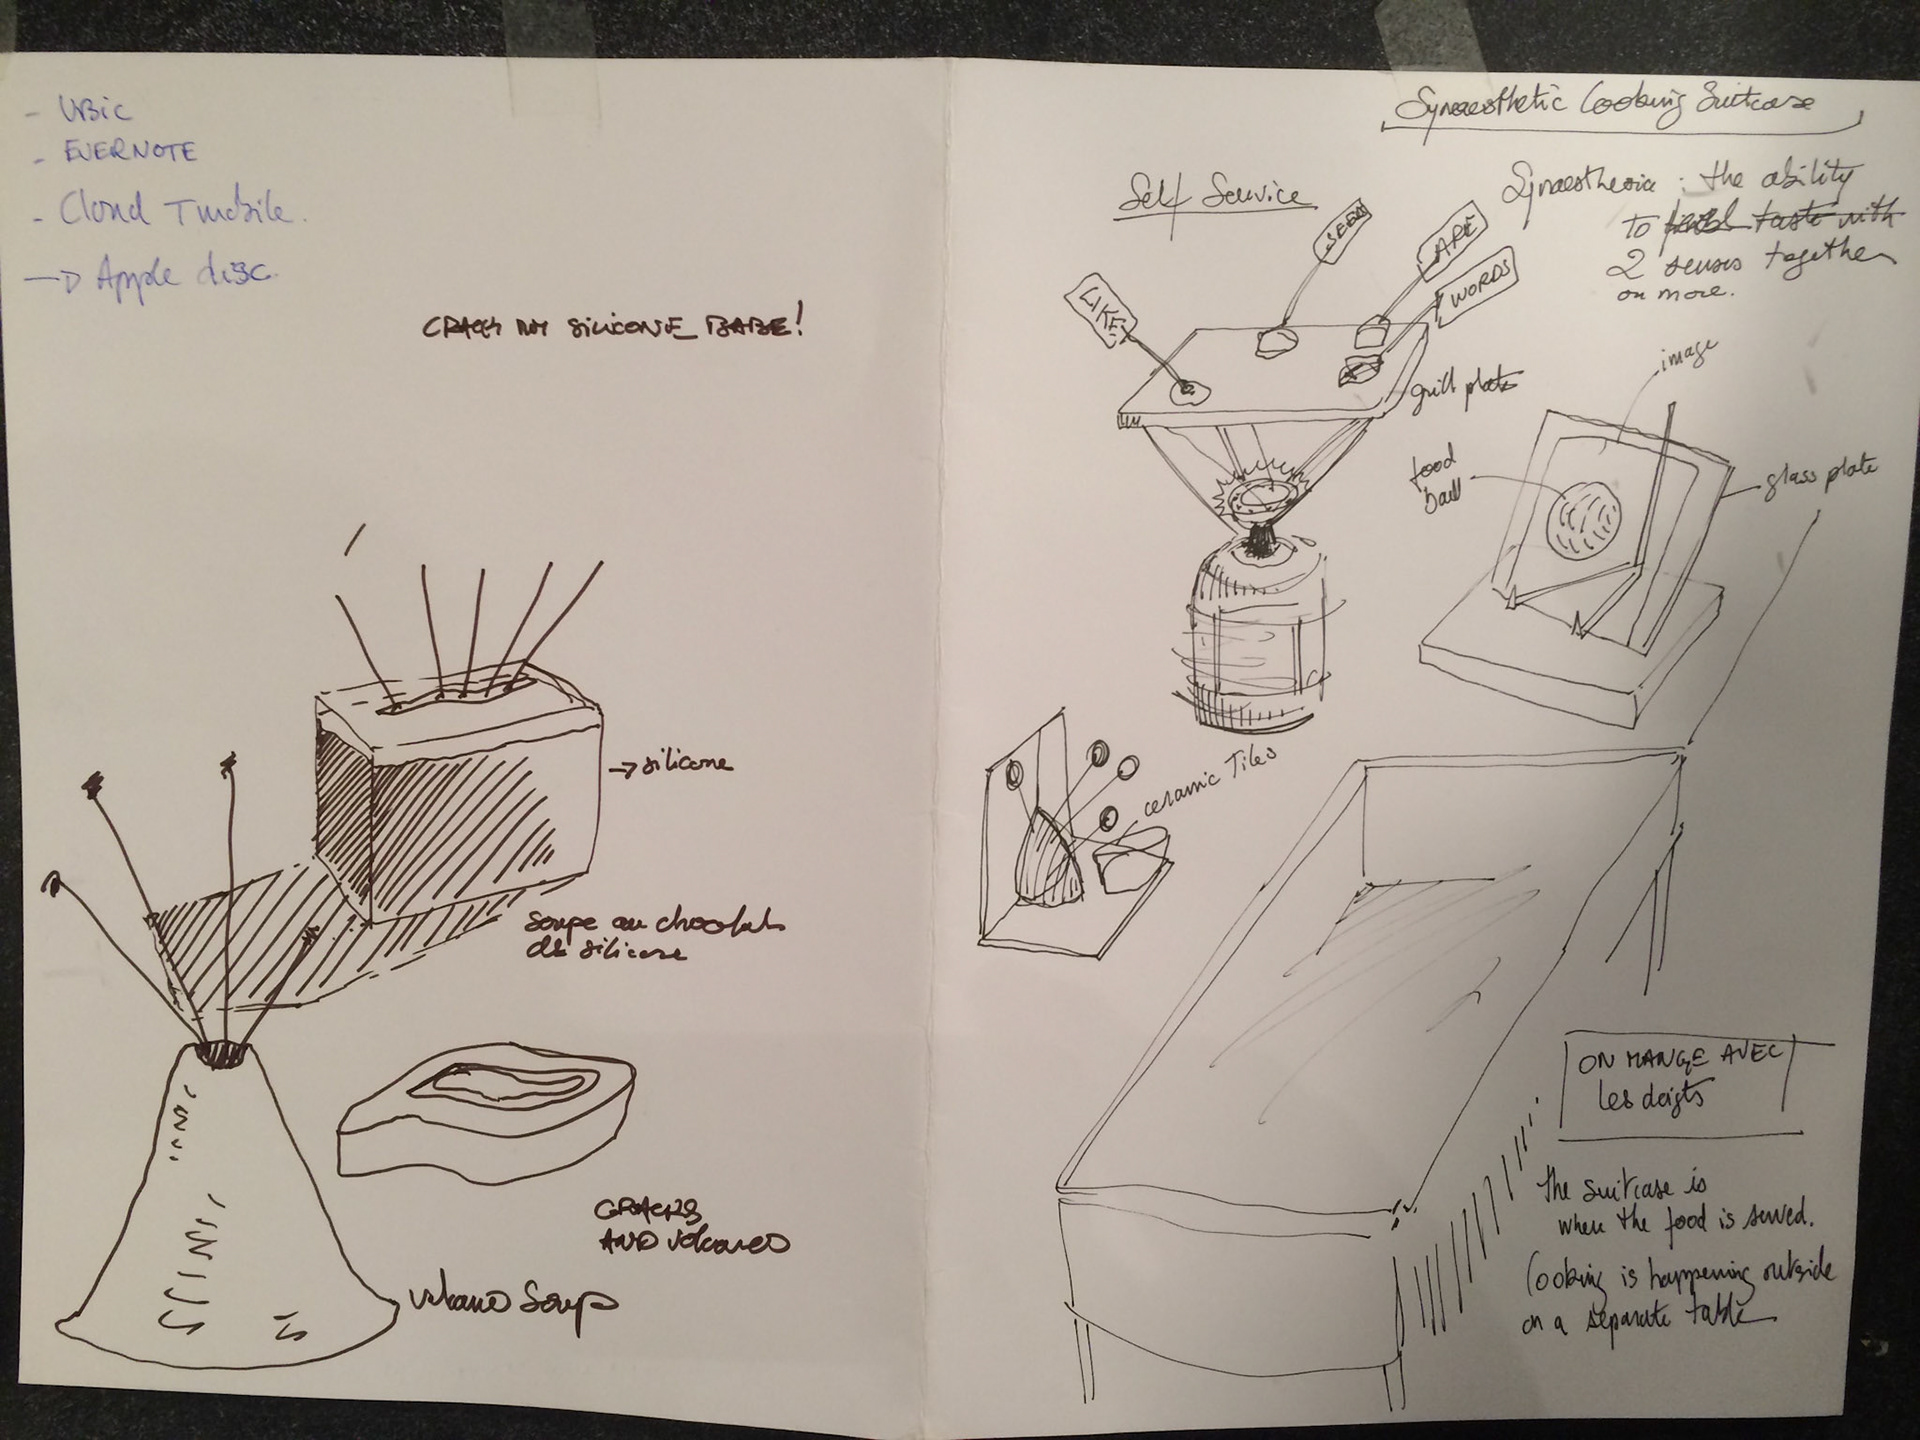 - UBic
- EVERNOTE
- Cloud Tmobile.
→ Apple disc.
CRACK MY SILICONE BABE!
→ silicone
soupe au chocolat
de silicone
CRACKS
AND volcanoes
volcano Soup
Synaesthetic Cooking Suitcase
Self Service
Synaesthesia : the ability
to taste with
2 senses together
or more.
SEEN
ARE
WORDS
LIKE
grill plate
image
food
ball
glass plate
ceramic Tiles
ON MANGE AVEC
les doigts
the suitcase is
where the food is served.
Cooking is happening outside
on a separate table